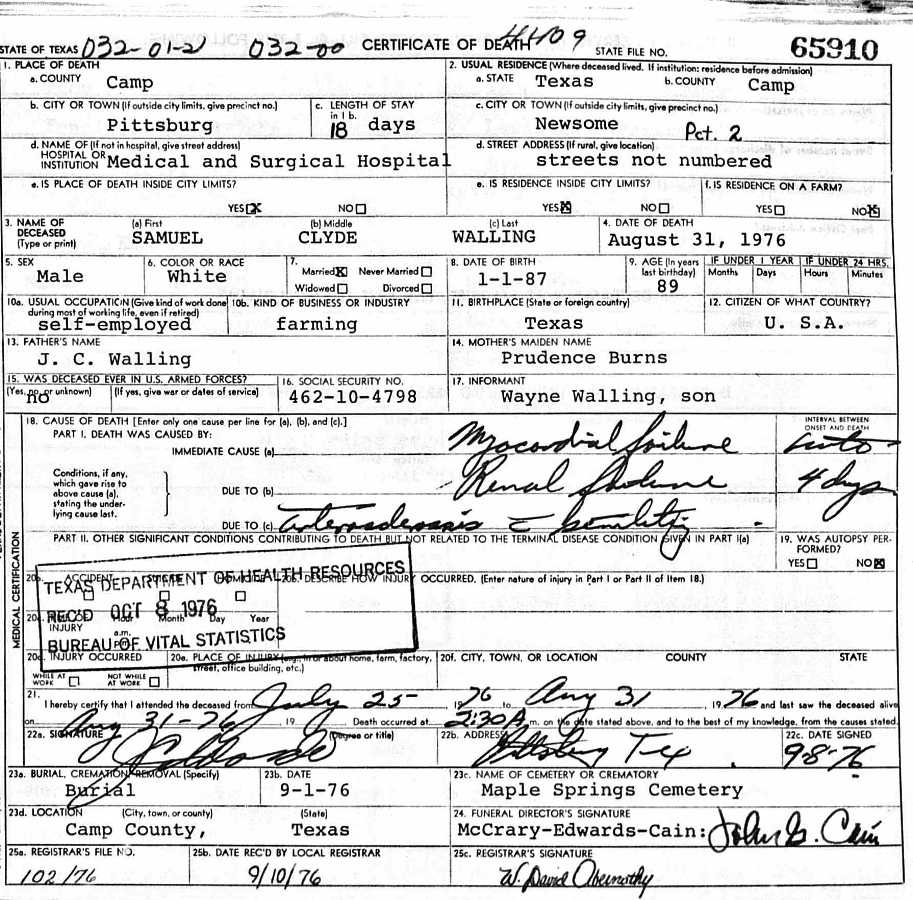 STATE OF TEXAS 032-01-21 032-00 CERTIFICATE OF DEATH 4409 STATE FILE NO. 65910
1. PLACE OF DEATH
a. COUNTY Camp
2. USUAL RESIDENCE (Where deceased lived. If institution: residence before admission)
a. STATE Texas b. COUNTY Camp
b. CITY OR TOWN (If outside city limits, give precinct no.) Pittsburg
c. LENGTH OF STAY in 1 b. 18 days
c. CITY OR TOWN (If outside city limits, give precinct no.)
Newsome Pct. 2
d. NAME OF (If not in hospital, give street address)
HOSPITAL OR INSTITUTION Medical and Surgical Hospital
d. STREET ADDRESS (If rural, give location)
streets not numbered
e. IS PLACE OF DEATH INSIDE CITY LIMITS?
YES X NO
e. IS RESIDENCE INSIDE CITY LIMITS?
YES X NO
f. IS RESIDENCE ON A FARM?
YES NO X
3. NAME OF DECEASED (Type or print)
(a) First (b) Middle (c) Last
SAMUEL CLYDE WALLING
4. DATE OF DEATH
August 31, 1976
5. SEX
Male
6. COLOR OR RACE
White
7. Married X Never Married
Widowed Divorced
8. DATE OF BIRTH
1-1-87
9. AGE (In years last birthday)
89
IF UNDER 1 YEAR IF UNDER 24 HRS.
Months Days Hours Minutes
10a. USUAL OCCUPATION (Give kind of work done during most of working life, even if retired)
self-employed
10b. KIND OF BUSINESS OR INDUSTRY
farming
11. BIRTHPLACE (State or foreign country)
Texas
12. CITIZEN OF WHAT COUNTRY?
U. S.A.
13. FATHER'S NAME
J. C. Walling
14. MOTHER'S MAIDEN NAME
Prudence Burns
15. WAS DECEASED EVER IN U.S. ARMED FORCES?
(Yes, no, or unknown) (If yes, give war or dates of service)
no
16. SOCIAL SECURITY NO.
462-10-4798
17. INFORMANT
Wayne Walling, son
18. CAUSE OF DEATH [Enter only one cause per line for (a), (b), and (c).]
INTERVAL BETWEEN ONSET AND DEATH
PART I. DEATH WAS CAUSED BY:
IMMEDIATE CAUSE (a) Myocardial failure
Conditions, if any, which gave rise to above cause (a), stating the underlying cause last.
DUE TO (b) Renal failure 4 days
DUE TO (c)
PART II. OTHER SIGNIFICANT CONDITIONS CONTRIBUTING TO DEATH BUT NOT RELATED TO THE TERMINAL DISEASE CONDITION GIVEN IN PART I(a)
19. WAS AUTOPSY PERFORMED?
YES NO X
MEDICAL CERTIFICATION
20a. ACCIDENT SUICIDE HOMICIDE
20b. DESCRIBE HOW INJURY OCCURRED. (Enter nature of injury in Part I or Part II of Item 18.)
TEXAS DEPARTMENT OF HEALTH RESOURCES
REC'D OCT 8 1976
BUREAU OF VITAL STATISTICS
INJURY Hour Month Day Year
a.m.
p.m.
20d. INJURY OCCURRED
WHILE AT WORK NOT WHILE AT WORK
20e. PLACE OF INJURY (e.g., in or about home, farm, factory, street, office building, etc.)
20f. CITY, TOWN, OR LOCATION COUNTY STATE
21. I hereby certify that I attended the deceased from July 25 1976 to Aug 31 1976 and last saw the deceased alive
on Aug 31-76 19 Death occurred at 2:30 A.m. on the date stated above, and to the best of my knowledge, from the causes stated.
22a. SIGNATURE (Degree or title)
22b. ADDRESS
Pittsburg Tex.
22c. DATE SIGNED
9-8-76
23a. BURIAL, CREMATION, REMOVAL (Specify)
Burial
23b. DATE
9-1-76
23c. NAME OF CEMETERY OR CREMATORY
Maple Springs Cemetery
23d. LOCATION (City, town, or county) (State)
Camp County, Texas
24. FUNERAL DIRECTOR'S SIGNATURE
McCrary-Edwards-Cain: John G. Cain
25a. REGISTRAR'S FILE NO.
102/76
25b. DATE REC'D BY LOCAL REGISTRAR
9/10/76
25c. REGISTRAR'S SIGNATURE
W. David Abernathy